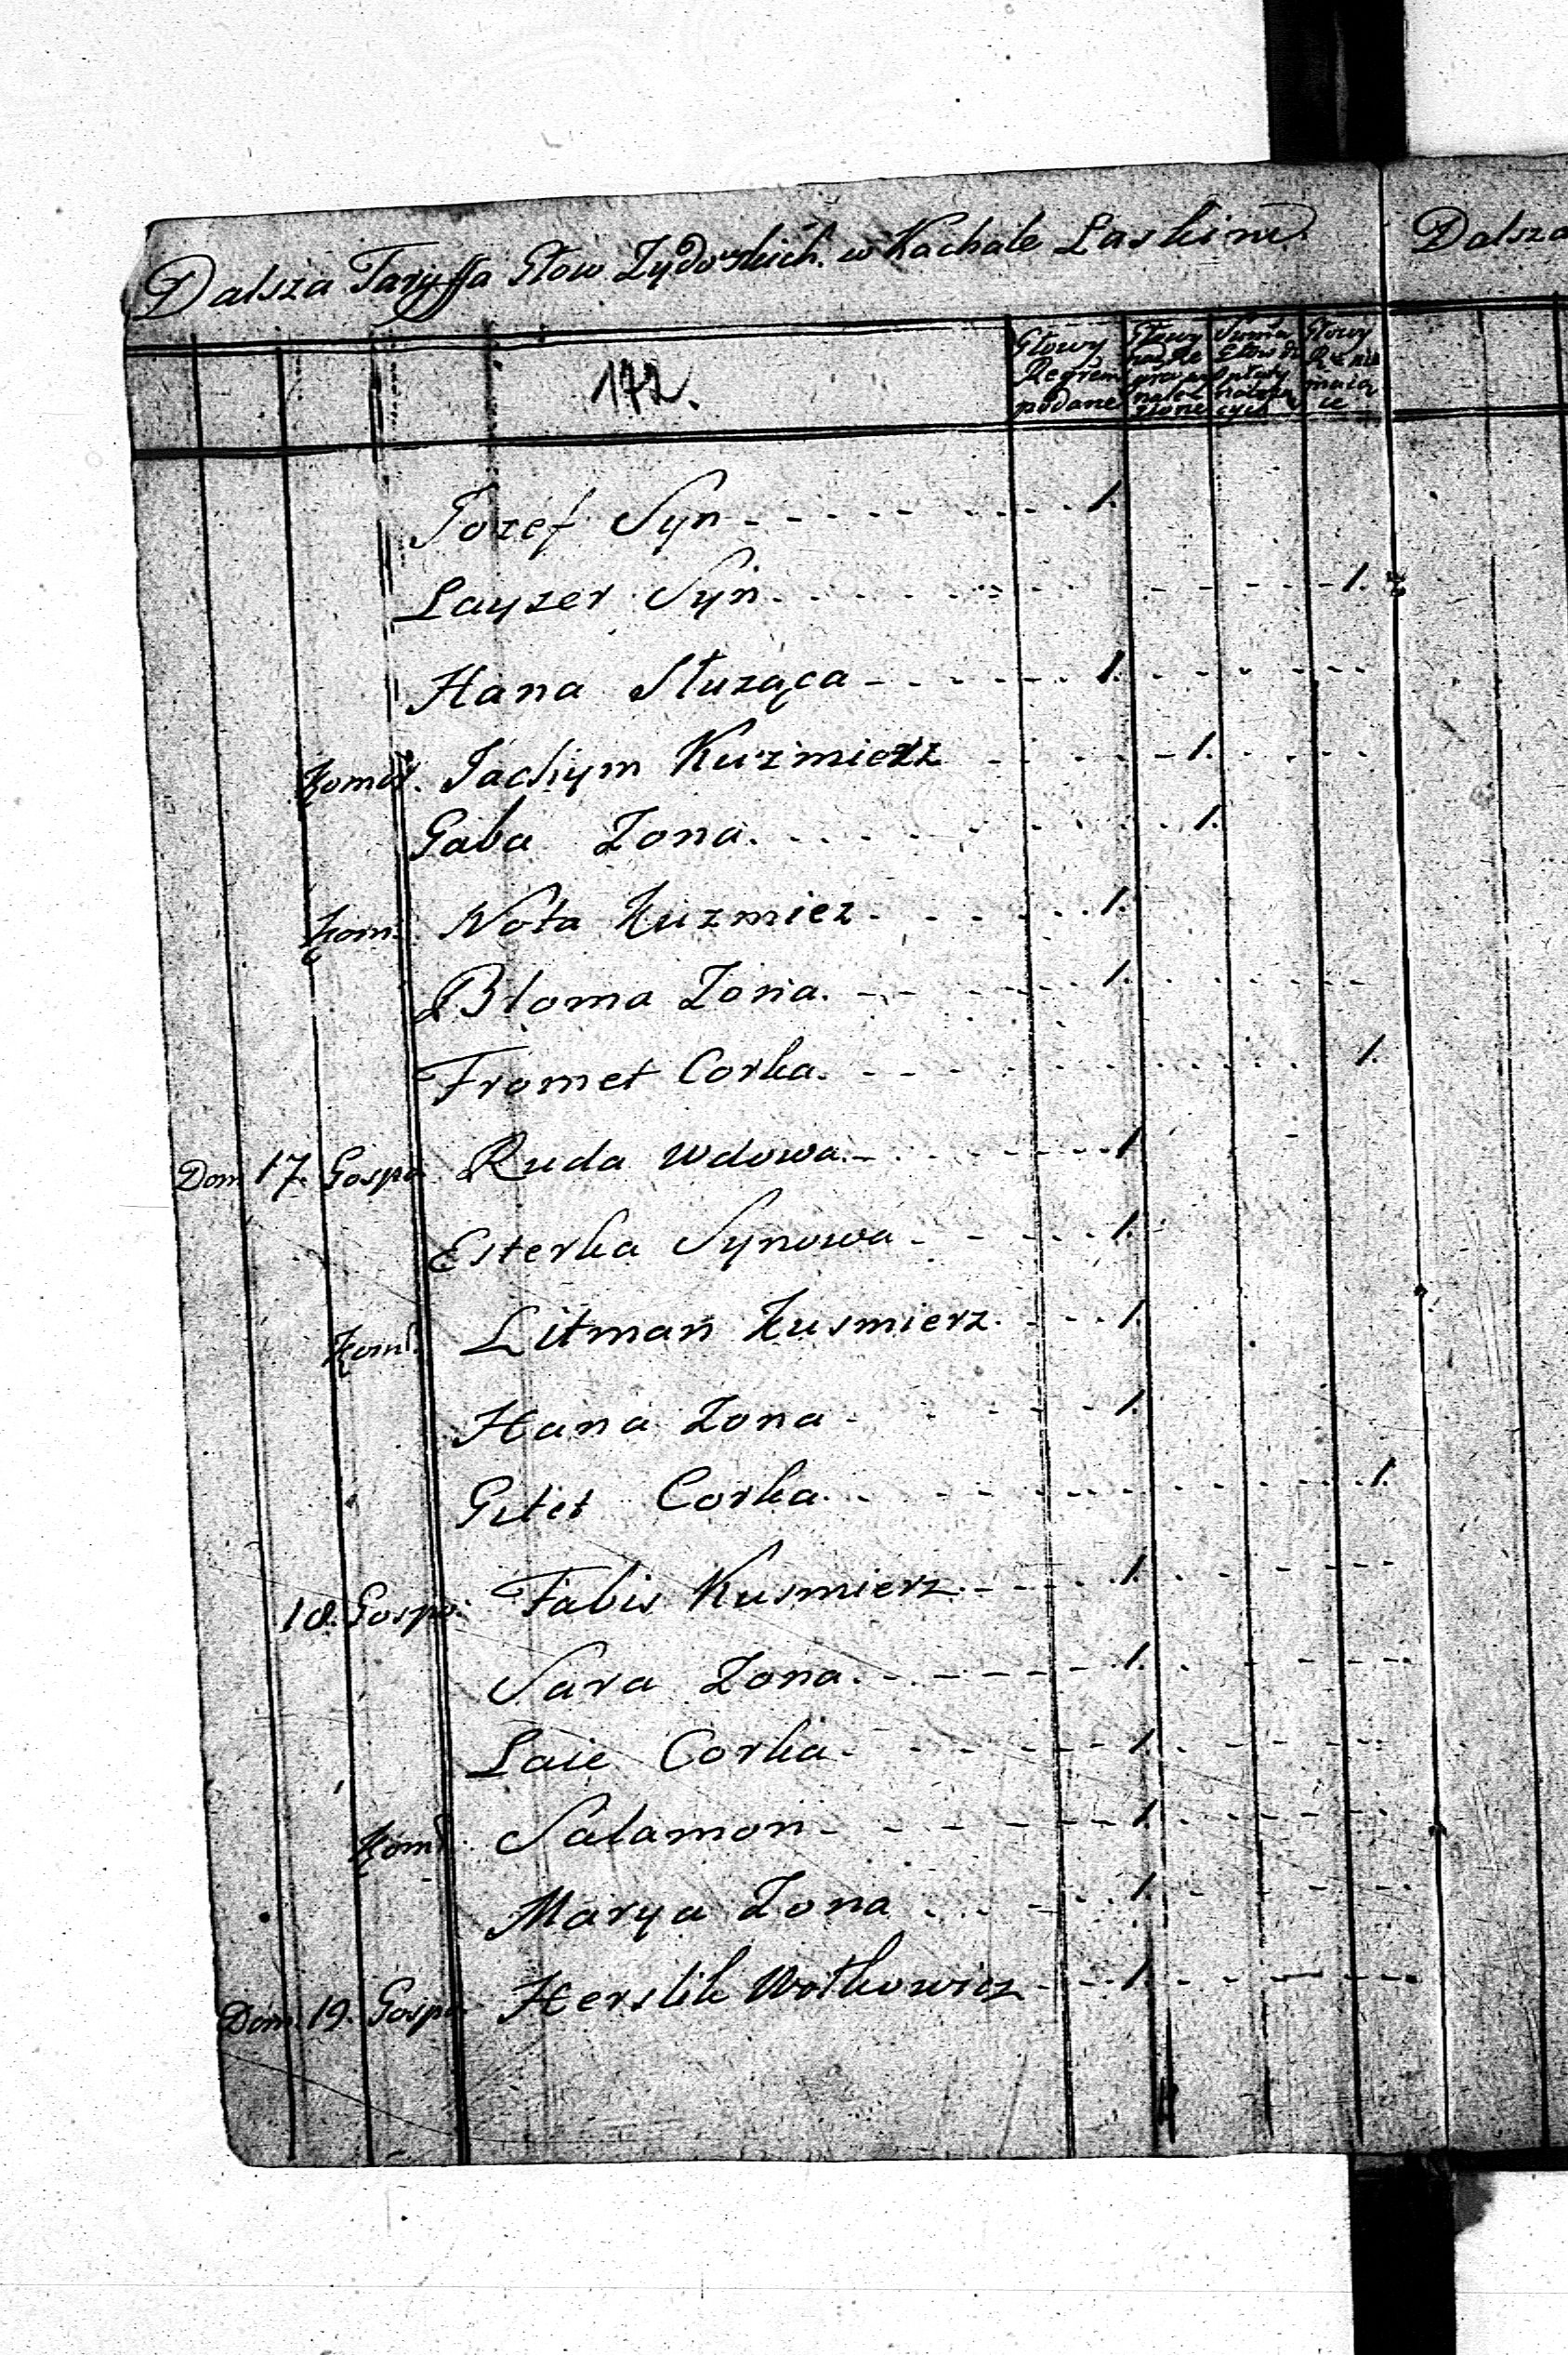 Dalsza Taryffa Głow Zydowskich w Kachale Laskim
Dalsza
172.
Głowy Regrem podane
Głowy nad Re
Summa Głow do opłaty należących
Głowy Roku nie maią ce
Jozef Syn - - - 1.
Layzer Syn - - - 1.
Hana Słuząca - - - 1.
Komor. Jachym Kuzmierz - - - 1.
Gaba Zona. - - - 1.
Kom: Nota Kuzmiez - - - 1.
Bloma Zona. - - - 1.
Fromet Corka. - - - 1.
Dom 17. Gospo. Ruda Wdowa - - - 1
Esterka Synowa - - - 1.
Komr. Litman Kusmierz. - - - 1.
Hana Zona - - - 1.
Gitet Corka. - - - 1.
18. Gospo: Fabis Kusmierz - - - 1.
Sara Zona. - - - 1.
Laie Corka - - - 1.
Komr: Salamon - - - 1.
Marya Zona - - - 1.
Dom. 19. Gospo. Herslik Wolkowicz - - - 1.